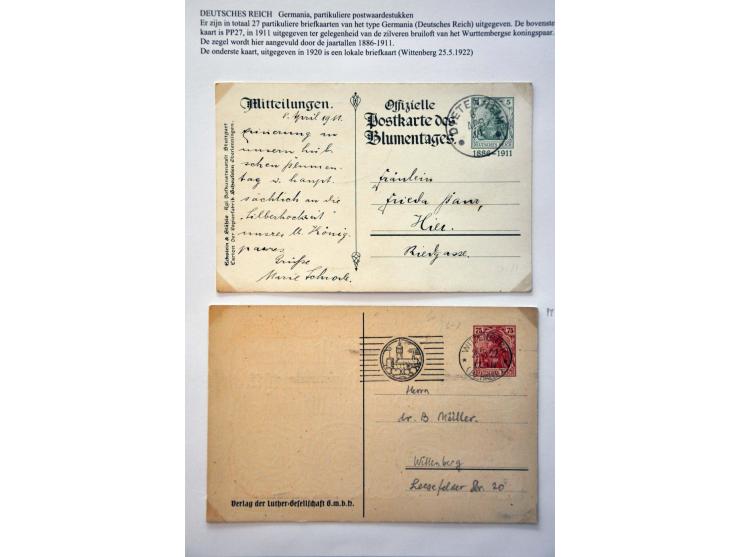 DEUTSCHES REICH Germania, partikuliere postwaardestukken
Er zijn in totaal 27 partikuliere briefkaarten van het type Germania (Deutsches Reich) uitgegeven. De bovenste
kaart is PP27, in 1911 uitgegeven ter gelegenheid van de zilveren bruiloft van het Wurttembergse koningspaar.
De zegel wordt hier aangevuld door de jaartallen 1886-1911.
De onderste kaart, uitgegeven in 1920 is een lokale briefkaart (Wittenberg 25.5.1922)
Mitteilungen.
April 1911.
Erinnerung an
unsern hüb-
schen Blumen-
tag u. haupt-
sächlich an die
"Silberhochzeit"
unsres K. König-
paares
Grüße
Marie
Offizielle
Postkarte des
Blumentages
5
DEUTSCHES REICH
1886-1911
Fräulein
Frieda
Hier.
Riedgasse.
75 75
WITTENBERG
Herrn
dr. B Müller.
Wittenberg
Leesefelder Str. 20
Verlag der Luther-Gesellschaft G.m.b.H.